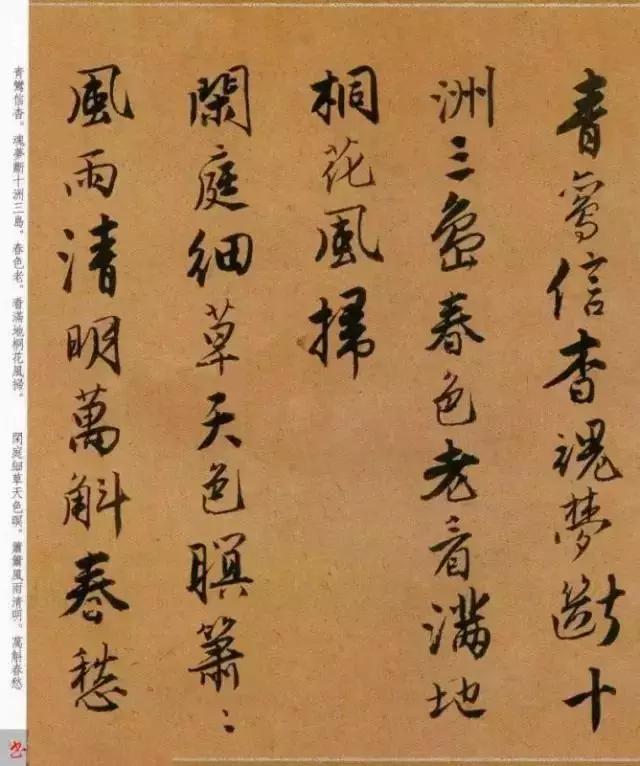 青鸞信杳魂夢斷十
洲三島春色老看滿地
桐花風掃
閑庭細草天色暝簫〻
風雨清明萬斛春愁
青鸞信杳。魂夢斷十洲三島。春色老。看滿地桐花風掃。　閑庭細草天色暝。簫簫風雨清明。萬斛春愁